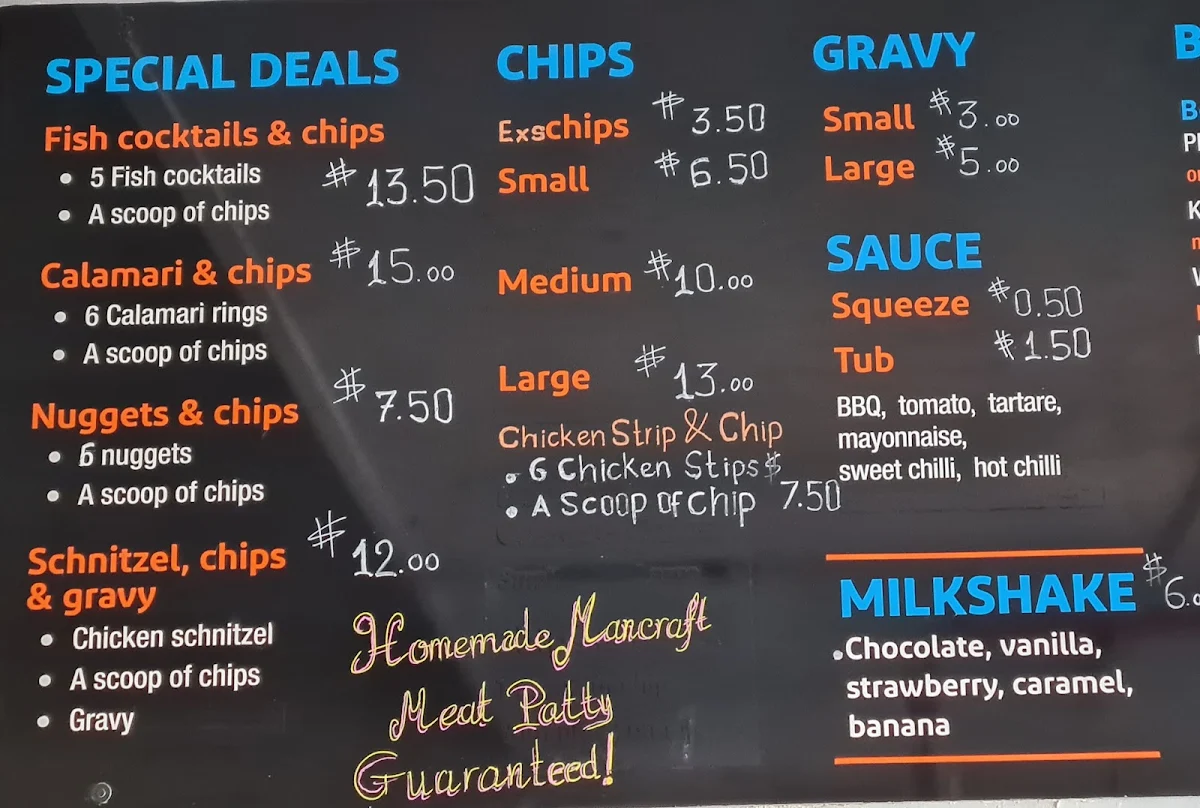 SPECIAL DEALS
Fish cocktails & chips
• 5 Fish cocktails
• A scoop of chips
$13.50
Calamari & chips $15.00
• 6 Calamari rings
• A scoop of chips
Nuggets & chips $7.50
• 6 nuggets
• A scoop of chips
Schnitzel, chips
& gravy
$12.00
• Chicken schnitzel
• A scoop of chips
• Gravy
CHIPS
Exschips $3.50
Small $6.50
Medium $10.00
Large $13.00
Chicken Strip & Chip
• 6 Chicken Stips $
• A Scoop of chip 7.50
Homemade Mancraft
Meat Patty
Guaranteed!
GRAVY
Small $3.00
Large $5.00
SAUCE
Squeeze $0.50
Tub $1.50
BBQ, tomato, tartare,
mayonnaise,
sweet chilli, hot chilli
MILKSHAKE $6.0
• Chocolate, vanilla,
strawberry, caramel,
banana